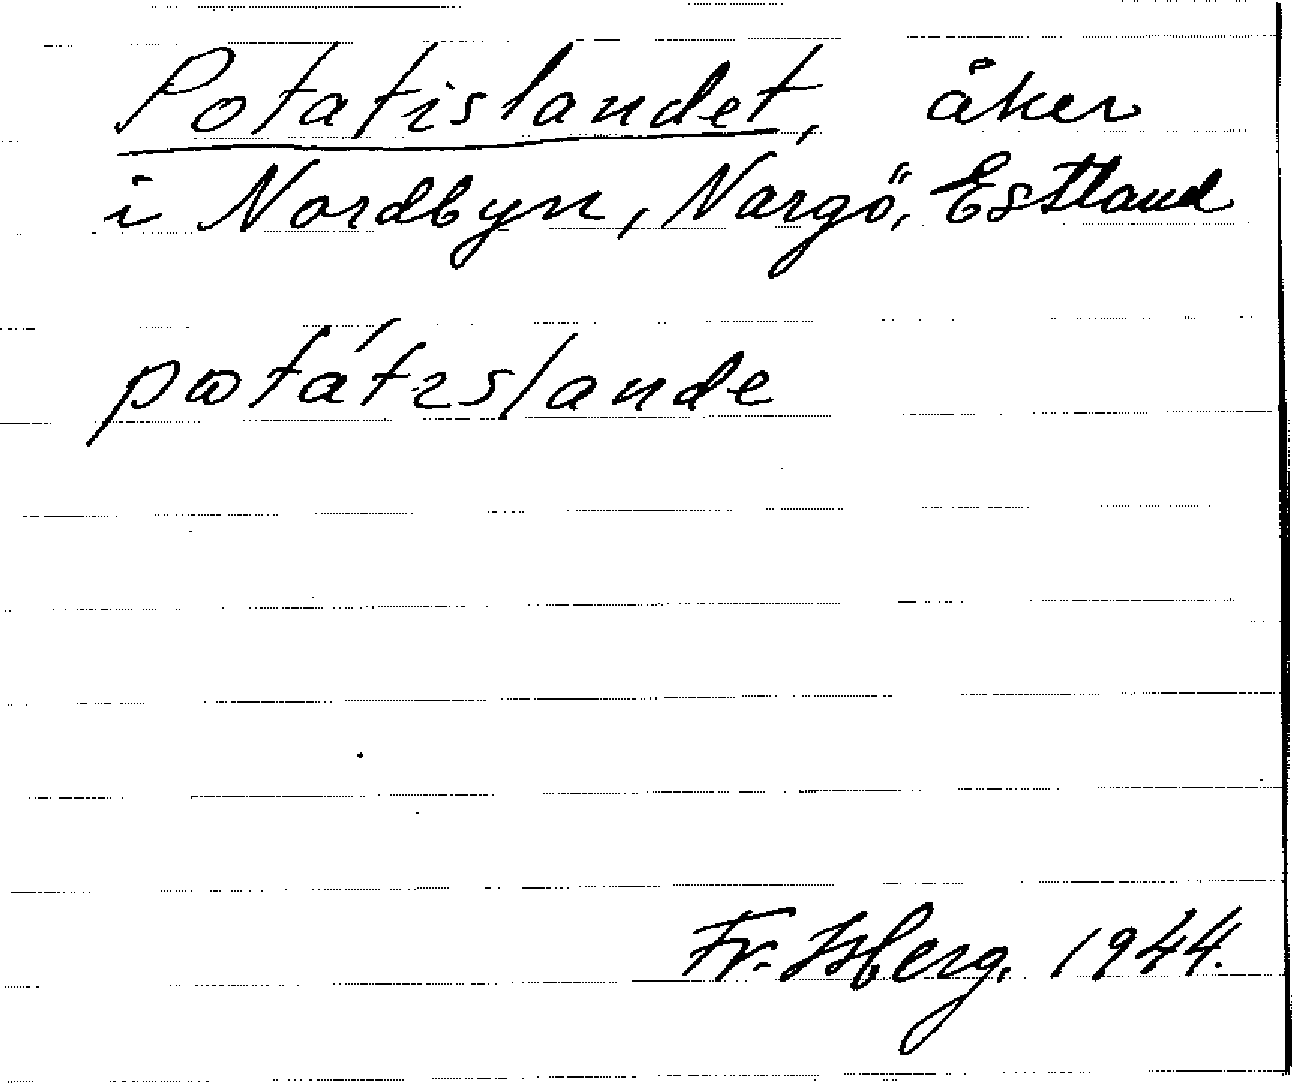 Potatislandet, åker
i Nordbyn, Nargö, Estland
pωtátıslande
Fr. Isberg, 1944.